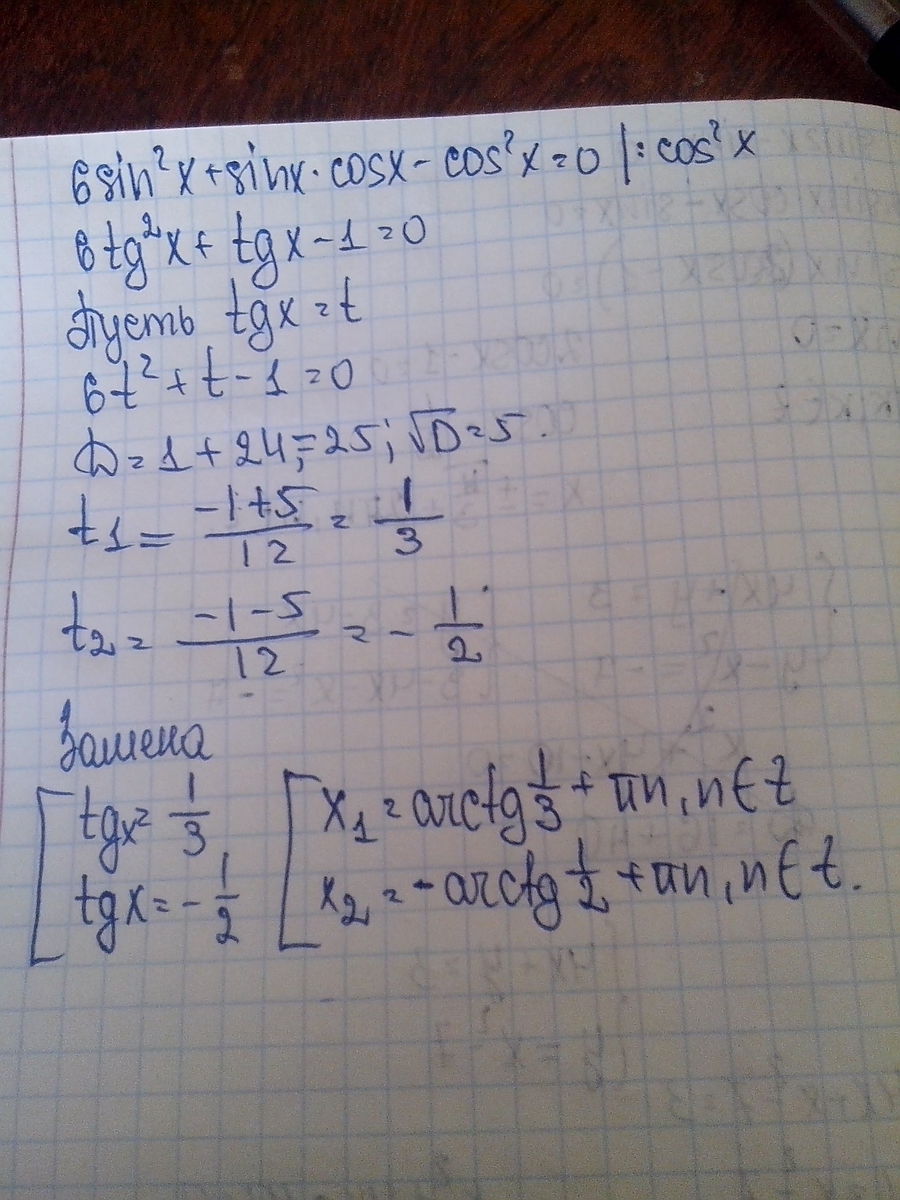 6sin²x+sinx·cosx-cos²x=0 |:cos²x
6tg²x+tgx-1=0
Пусть tgx=t
6t²+t-1=0
D=1+24=25; √D=5
t1=(-1+5)/12=1/3
t2=(-1-5)/12=-1/2
Замена
[tgx=1/3 [x1=arctg1/3+πn,n∈Z
tgx=-1/2 x2=-arctg1/2+πn,n∈Z.